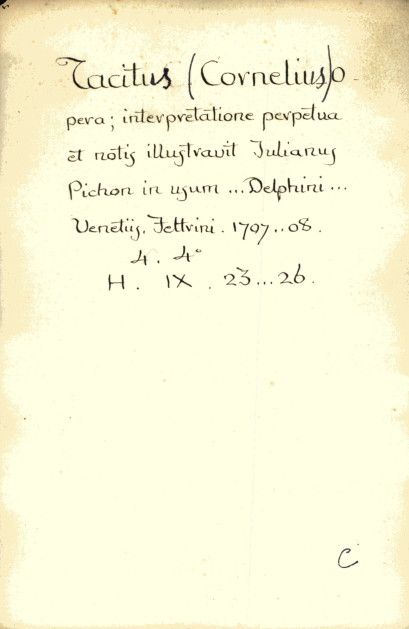 Tacitus (Cornelius) O-
pera; interpretatione perpetua
et notis illustravit Julianus
Pichon in usum ... Delphini ...
Venetiis. Fettrini. 1707..08.
4. 4°
H. IX. 23...26.
C